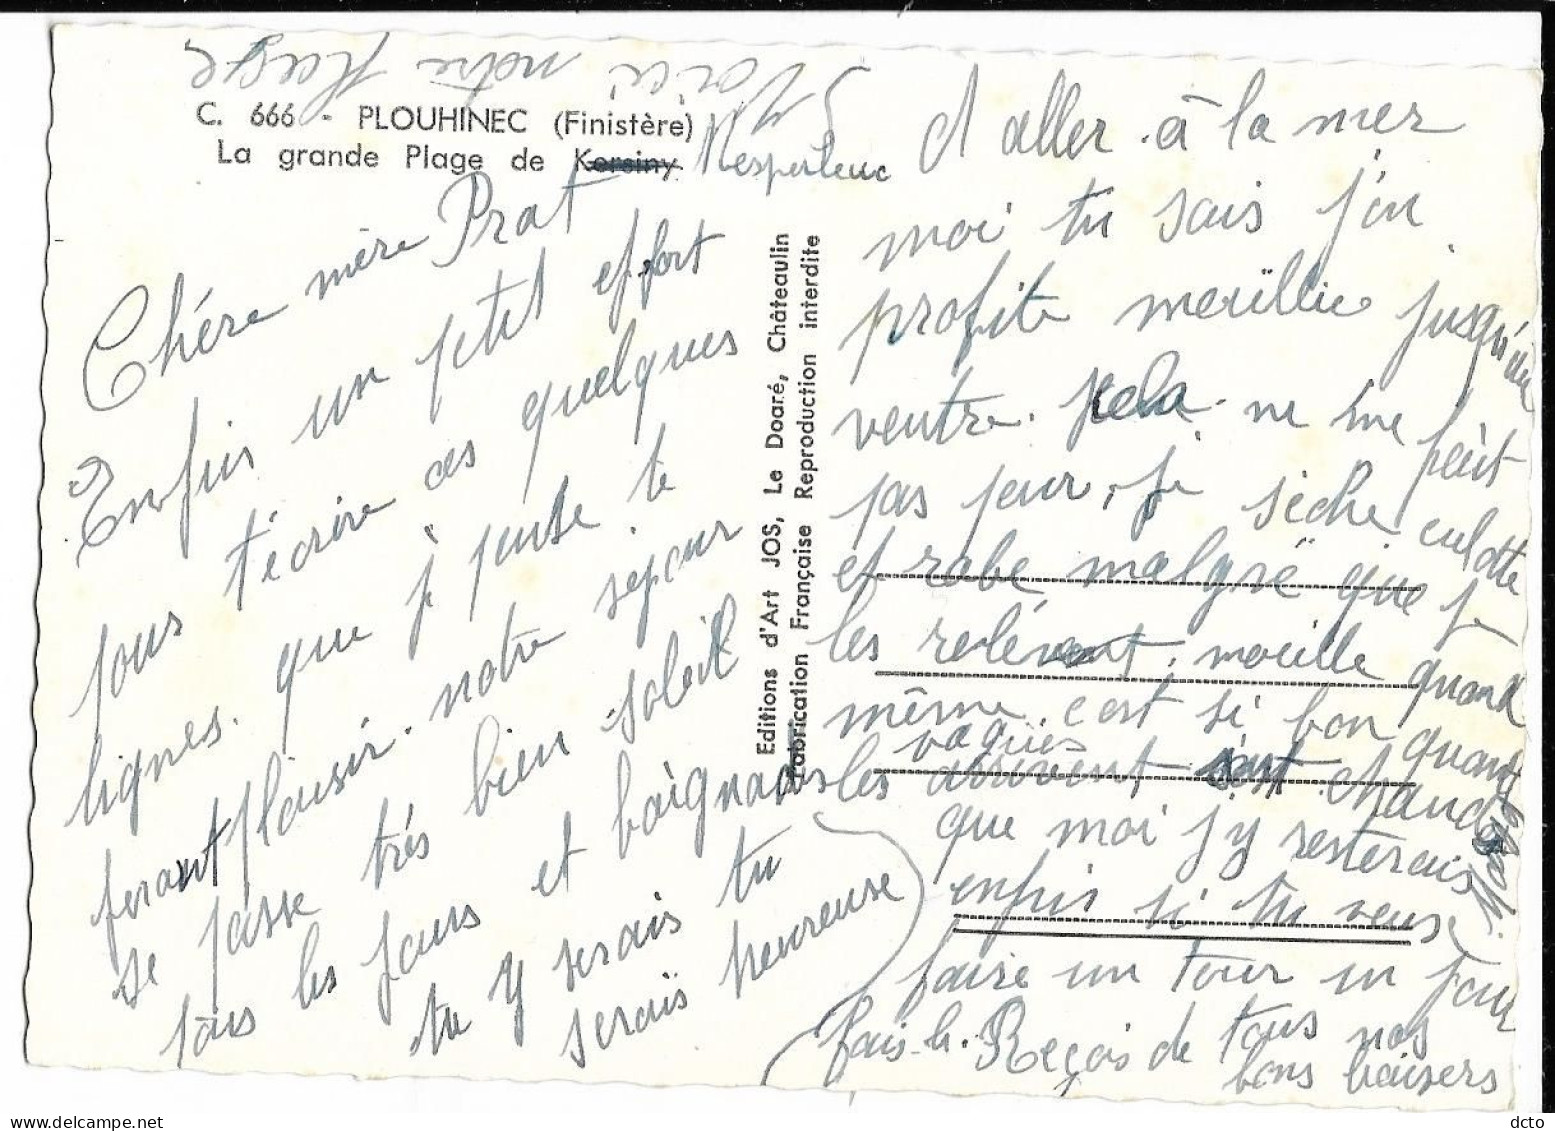 Voici notre Plage
C. 666 - PLOUHINEC (Finistère)
La grande Plage de Kersiny Mesperleuc
Chére mére Prat
Enfin un petit effort
pour t'écrire ces quelques
lignes. que je pense te
feront plaisir. notre sejour
se passe trés bien soleil
tous les jours et baignades
tu y serais tu
serais heureuse
Editions d'Art JOS, Le Doaré, Châteaulin
Fabrication Française Reproduction interdite
d aller à la mer
moi tu sais j'en
profite mouillée jusqu'au
ventre. cela ne me fait
pas peur, je sèche culotte
et robe malgré que je
les relévent mouille quand
même c'est si bon quand
les vagues arrivent sont chaudes
que moi j'y resterais
enfin si tu veus
faire un tour un jour
fais-le. Reçois de tous nos
bons baisers